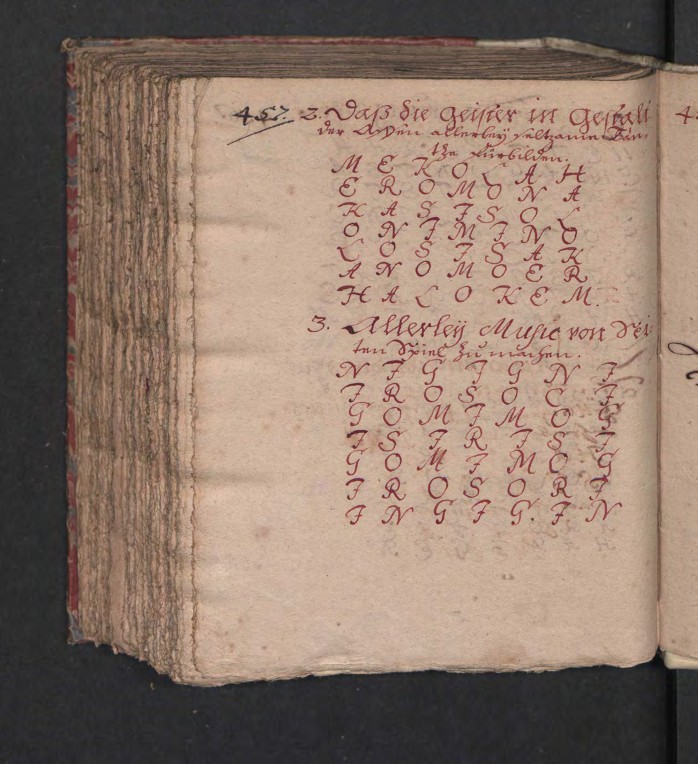 457.
2. Daß die Geister in Gestalt
der Affen allerley seltzame Tän-
tze fürbilden.
M E K O L A H
E R O M O N A
K A S I S O L
O N I M I N O
L O S I S A K
A N O M O E R
H A L O K E M.
3. Allerley Music von Sei-
ten Spiel zu machen.
N I G I G N I
I R O S O C I
G O M I M O G
I S I R I S I
G O M I M O G
I R O S O R I
I N G I G. I N
4